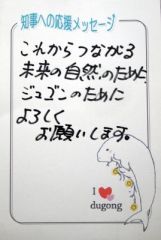 知事への応援メッセージ
これからつながる
未来の自然のために、
ジュゴンのために
よろしく
お願いします。
I
dugong